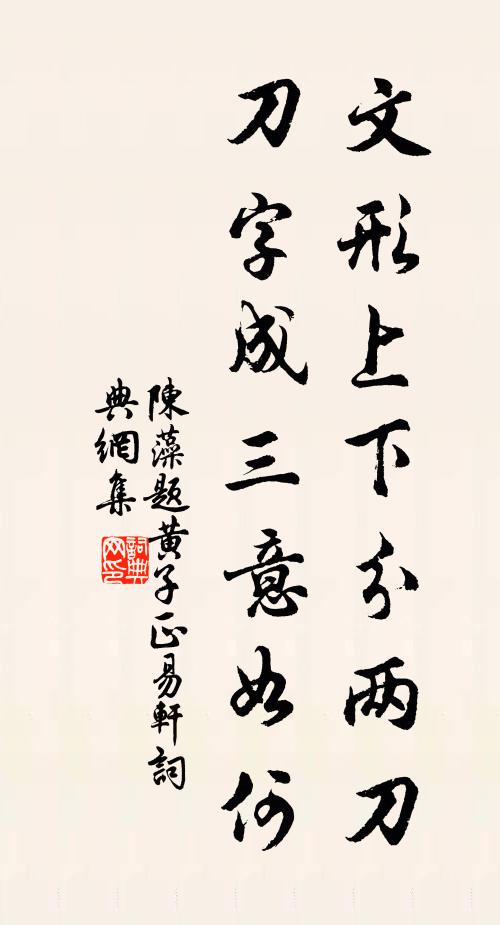 文形上下分两刀
刀字成三意如何
陳藻题黄子正易軒詞
典網集
詞典
网印